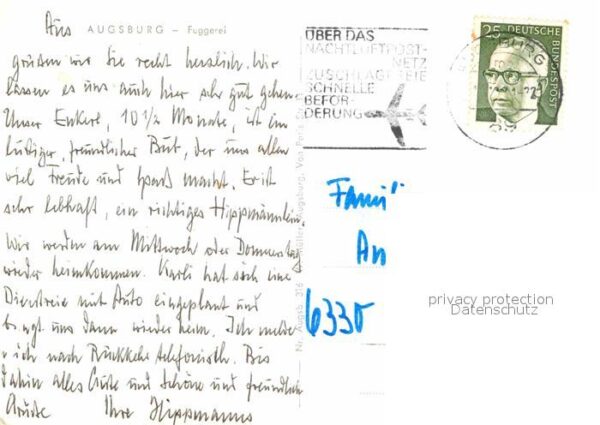 Aus AUGSBURG – Fuggerei
grüßen wir Sie recht herzlich. Wir
lassen es uns auch hier sehr gut gehen.
Unser Enkerl, 10 1/2 Monate, ist ein
lustiger, freundlicher Bub, der uns allen
viel Freude und Spaß macht. Er ist
sehr lebhaft, ein richtiges Hippmännlein.
Wir werden am Mittwoch oder Donnerstag
wieder heimkommen. Karli hat sich eine
Dienstreise mit Auto eingeplant und
uns dann wieder heim. Ich melde
mich nach Rückkehr telefonisch. Bis
dahin alles Gute und Schöne und freundliche
Grüße Ihre Hippmanns
Nr. Augsb. 316 Augsburg, Vol
ÜBER DAS
NACHTLUFTPOST-
NETZ
ZUSCHLAGFREIE
SCHNELLE
BEFÖR-
DERUNG
25 DEUTSCHE
BUNDESPOST
89
Fami
An
6330
privacy protection
Datenschutz